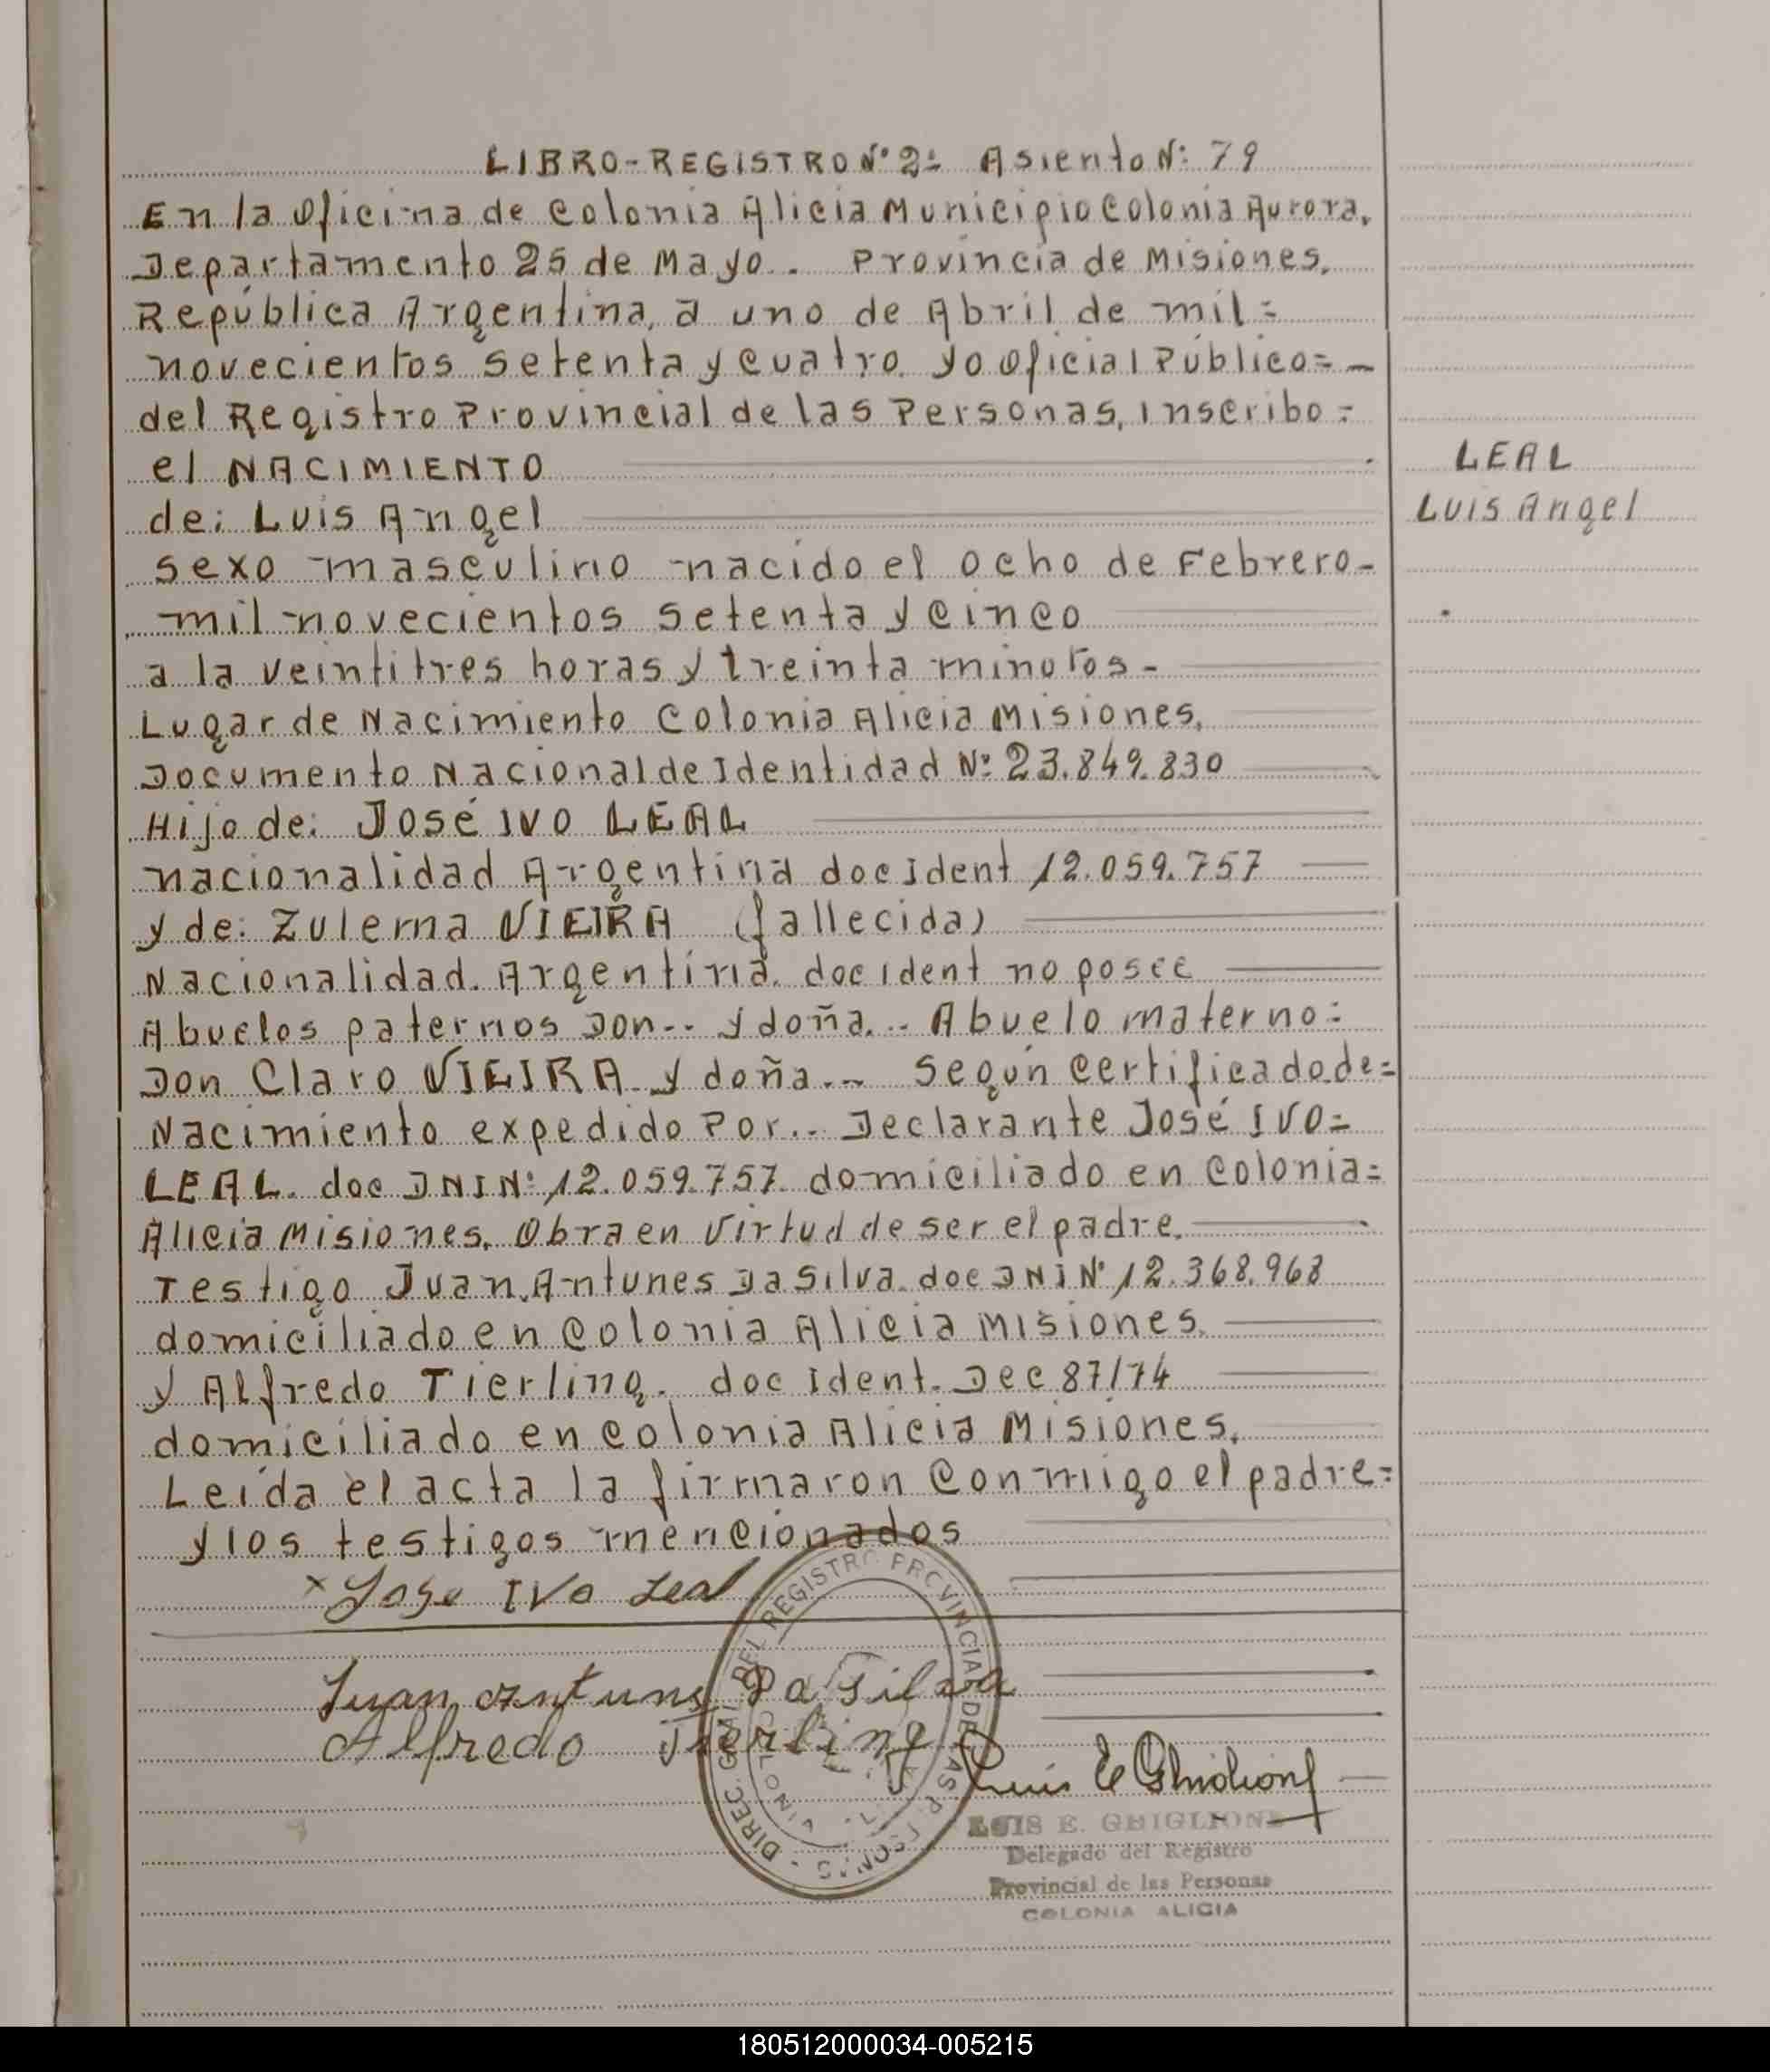 LIBRO-REGISTRO Nº 2= Asiento Nº 79
En la Oficina de Colonia Alicia Municipio Colonia Aurora.
Departamento 25 de Mayo.. Provincia de Misiones.
República Argentina, a uno de Abril de mil=
novecientos setenta y cuatro. yo Oficial Público=-
del Registro Provincial de las Personas, Inscribo=
el NACIMIENTO
LEAL
de: Luis Angel
Luis Angel
sexo masculino nacido el ocho de Febrero-
mil novecientos setenta y cinco
a la veintitres horas y treinta minutos-
Lugar de Nacimiento Colonia Alicia Misiones.
Documento Nacional de Identidad Nº 23.849.830
Hijo de: José IVO LEAL
nacionalidad Argentina doc Ident 12.059.757
y de: Zulema VIEIRA (fallecida)
Nacionalidad. Argentina. doc ident no posee
Abuelos paternos Don-- y doña.-- Abuelo materno=
Don Claro VIEIRA y doña.-- Según certificado de=
Nacimiento expedido Por.-- Declarante José IVO=
LEAL. doc DNI Nº 12.059.757. domiciliado en Colonia=
Alicia Misiones. Obra en Virtud de ser el padre.
Testigo Juan Antunes Da Silva. doc DNI Nº 12.368.968
domiciliado en Colonia Alicia Misiones.
y Alfredo Tierling. doc Ident. Dec 87/74
domiciliado en Colonia Alicia Misiones.
Leída el acta la firmaron Conmigo el padre=
y los testigos mencionados
x Jose IVo Leal
Juan Antuns Da Silva
Alfredo Tierling
Luis E Ghiglione
DIREC. GRAL. DEL REGISTRO PROVINCIAL DE LAS PERSONAS
LUIS E. GHIGLIONE
Delegado del Registro
Provincial de las Personas
COLONIA ALICIA
180512000034-005215